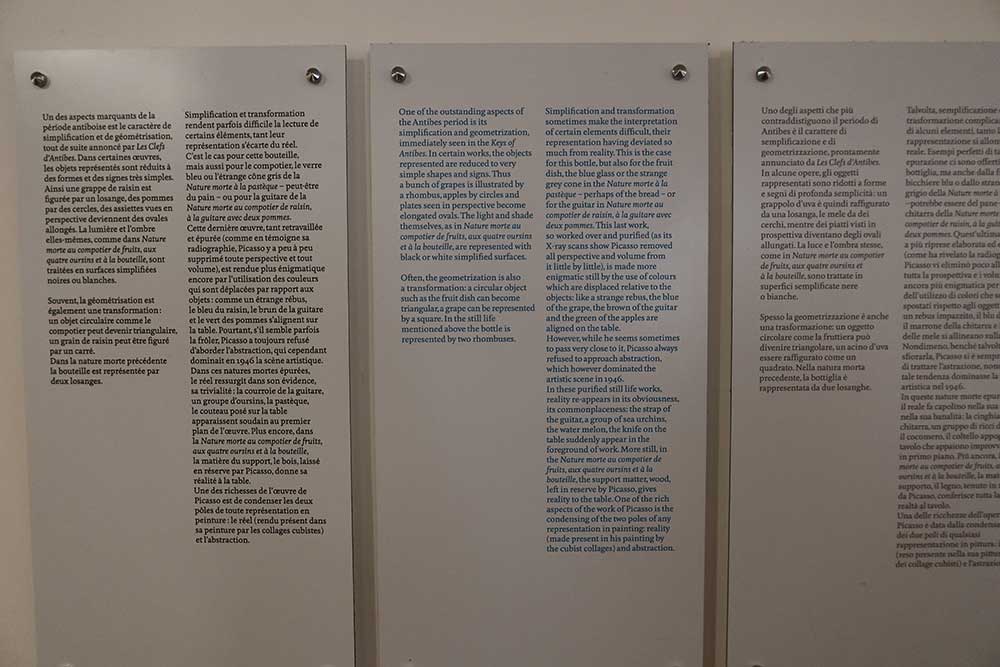 Un des aspects marquants de la
période antiboise est le caractère de
simplification et de géométrisation,
tout de suite annoncé par Les Clefs
d'Antibes. Dans certaines œuvres,
les objets représentés sont réduits à
des formes et des signes très simples.
Ainsi une grappe de raisin est
figurée par un losange, des pommes
par des cercles, des assiettes vues en
perspective deviennent des ovales
allongés. La lumière et l'ombre
elles-mêmes, comme dans Nature
morte au compotier de fruits, aux
quatre oursins et à la bouteille, sont
traitées en surfaces simplifiées
noires ou blanches.
Souvent, la géométrisation est
également une transformation :
un objet circulaire comme le
compotier peut devenir triangulaire,
un grain de raisin peut être figuré
par un carré.
Dans la nature morte précédente
la bouteille est représentée par
deux losanges.
Simplification et transformation
rendent parfois difficile la lecture de
certains éléments, tant leur
représentation s'écarte du réel.
C'est le cas pour cette bouteille,
mais aussi pour le compotier, le verre
bleu ou l'étrange cône gris de la
Nature morte à la pastèque – peut-être
du pain – ou pour la guitare de la
Nature morte au compotier de raisin,
à la guitare avec deux pommes.
Cette dernière œuvre, tant retravaillée
et épurée (comme en témoigne sa
radiographie, Picasso y a peu à peu
supprimé toute perspective et tout
volume), est rendue plus énigmatique
encore par l'utilisation des couleurs
qui sont déplacées par rapport aux
objets : comme un étrange rébus,
le bleu du raisin, le brun de la guitare
et le vert des pommes s'alignent sur
la table. Pourtant, s'il semble parfois
la frôler, Picasso a toujours refusé
d'aborder l'abstraction, qui cependant
dominait en 1946 la scène artistique.
Dans ces natures mortes épurées,
le réel ressurgit dans son évidence,
sa trivialité : la courroie de la guitare,
un groupe d'oursins, la pastèque,
le couteau posé sur la table
apparaissent soudain au premier
plan de l'œuvre. Plus encore, dans
la Nature morte au compotier de fruits,
aux quatre oursins et à la bouteille,
la matière du support, le bois, laissé
en réserve par Picasso, donne sa
réalité à la table.
Une des richesses de l'œuvre de
Picasso est de condenser les deux
pôles de toute représentation en
peinture : le réel (rendu présent dans
sa peinture par les collages cubistes)
et l'abstraction.
One of the outstanding aspects of
the Antibes period is its
simplification and geometrization,
immediately seen in the Keys of
Antibes. In certain works, the objects
represented are reduced to very
simple shapes and signs. Thus
a bunch of grapes is illustrated by
a rhombus, apples by circles and
plates seen in perspective become
elongated ovals. The light and shade
themselves, as in Nature morte au
compotier de fruits, aux quatre oursins
et à la bouteille, are represented with
black or white simplified surfaces.
Often, the geometrization is also
a transformation: a circular object
such as the fruit dish can become
triangular, a grape can be represented
by a square. In the still life
mentioned above the bottle is
represented by two rhombuses.
Simplification and transformation
sometimes make the interpretation
of certain elements difficult, their
representation having deviated so
much from reality. This is the case
for this bottle, but also for the fruit
dish, the blue glass or the strange
grey cone in the Nature morte à la
pastèque – perhaps of the bread – or
for the guitar in Nature morte au
compotier de raisin, à la guitare avec
deux pommes. This last work,
so worked over and purified (as its
X-ray scans show Picasso removed
all perspective and volume from
it little by little), is made more
enigmatic still by the use of colours
which are displaced relative to the
objects: like a strange rebus, the blue
of the grape, the brown of the guitar
and the green of the apples are
aligned on the table.
However, while he seems sometimes
to pass very close to it, Picasso always
refused to approach abstraction,
which however dominated the
artistic scene in 1946.
In these purified still life works,
reality re-appears in its obviousness,
its commonplaceness: the strap of
the guitar, a group of sea urchins,
the water melon, the knife on the
table suddenly appear in the
foreground of work. More still, in
the Nature morte au compotier de
fruits, aux quatre oursins et à la
bouteille, the support matter, wood,
left in reserve by Picasso, gives
reality to the table. One of the rich
aspects of the work of Picasso is the
condensing of the two poles of any
representation in painting: reality
(made present in his painting by
the cubist collages) and abstraction.
Uno degli aspetti che più
contraddistiguono il periodo di
Antibes è il carattere di
semplificazione e di
geometrizzazione, prontamente
annunciato da Les Clefs d'Antibes.
In alcune opere, gli oggetti
rappresentati sono ridotti a forme
e segni di profonda semplicità: un
grappolo d'uva è quindi raffigurato
da una losanga, le mele da dei
cerchi, mentre dei piatti visti in
prospettiva diventano degli ovali
allungati. La luce e l'ombra stesse,
come in Nature morte au compotier
de fruits, aux quatre oursins et
à la bouteille, sono trattate in
superfici semplificate nere
o bianche.
Spesso la geometrizzazione è anche
una trasformazione: un oggetto
circolare come la fruttiera può
divenire triangolare, un acino d'uva
essere raffigurato come un
quadrato. Nella natura morta
precedente, la bottiglia è
rappresentata da due losanghe.
Talvolta, semplificazione
trasformazione complica
di alcuni elementi, tanto
rappresentazione si allon
reale. Esempi perfetti di ta
epurazione ci sono offerti
bottiglia, ma anche dalla f
bicchiere blu o dallo stran
grigio della Nature morte à
–potrebbe essere del pane
chitarra della Nature morte
compotier de raisin, à la gui
deux pommes. Quest'ultima
a più riprese elaborata ed
(come ha rivelato la radiog
Picasso vi eliminò poco all
tutta la prospettiva e i volu
ancora più enigmatica per
dell'utilizzo di colori che s
spostati rispetto agli oggett
un rebus impazzito, il blu d
il marrone della chitarra e
delle mele si allineano sulla
Nondimeno, benché talvol
sfiorarla, Picasso si è semp
di trattare l'astrazione, non
tale tendenza dominasse la
artistica nel 1946.
In queste nature morte epur
il reale fa capolino nella sua
nella sua banalità: la cinghia
chitarra, un gruppo di ricci d
il cocomero, il coltello appog
tavolo che appaiono improvv
in primo piano. Più ancora,
morte au compotier de fruits, a
oursins et à la bouteille, la mat
supporto, il legno, tenuto in
da Picasso, conferisce tutta la
realtà al tavolo.
Una delle ricchezze dell'oper
Picasso è data dalla condensa
dei due poli di qualsiasi
rappresentazione in pittura:
(reso presente nella sua pittu
dei collage cubisti) e l'astrazio